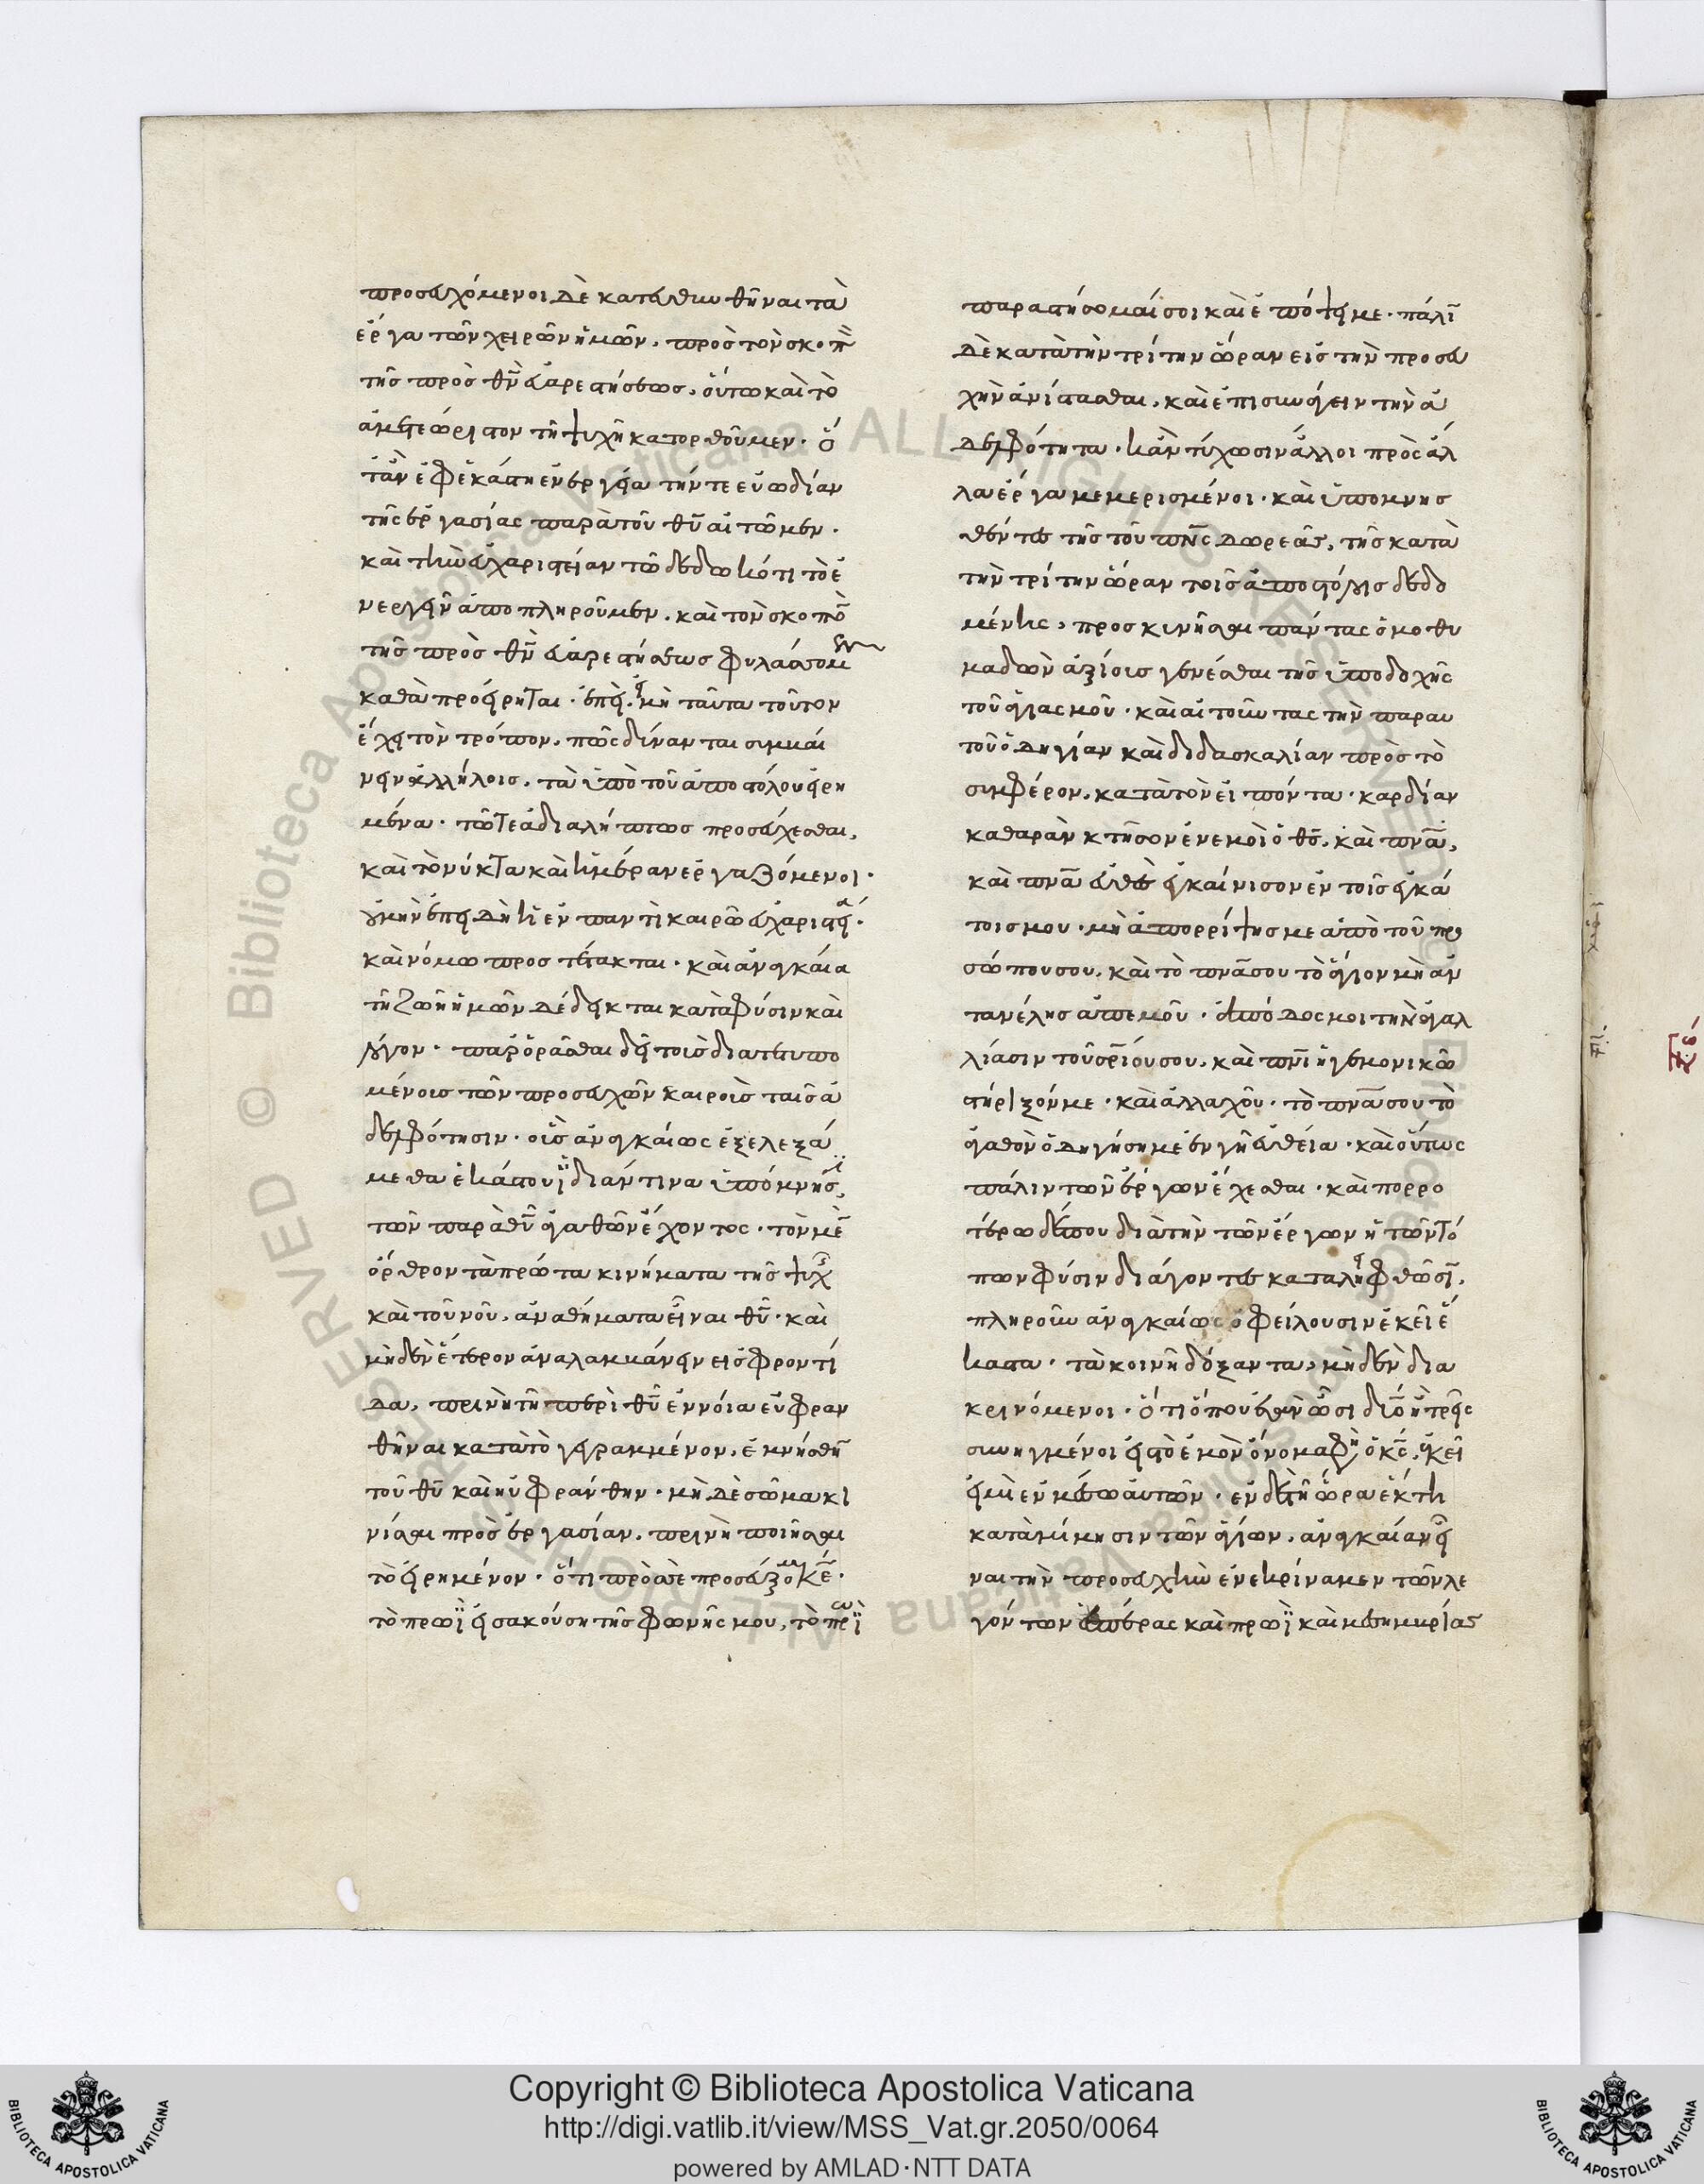 προσευχόμενοι δὲ κατευθυνθῆναι τὰ
ἔργα τῶν χειρῶν ἡμῶν, πρὸς τὸν σκοπὸν
τῆς πρὸς θν̄ εὐαρεστήσεως. οὕτω καὶ τὸ
ἀμετεώριστον τῇ ψυχῇ κατορθοῦμεν· ὅ
ταν ἐφ' ἑκάστῃ ἐνεργεία τήν τε εὐωδίαν
τῆς ἐργασίας παρὰ τοῦ θῡ αἰτῶμεν·
καὶ τὴν εὐχαριστείαν τῶ δεδωκότι τὸ ἐ
νεργεῖν ἀποπληροῦμεν. καὶ τὸν σκοπὸ
τῆς πρὸς θν̄ εὐαρεστήσεως φυλάσσομεν
καθὰ προείρηται· ἐπεὶ εἰ μὴ ταῦτα τοῦτον
ἔχει τὸν τρόπον, πῶς δύνανται συμβαί
νειν ἀλλήλοις, τὰ ὑπὸ τοῦ ἀποστόλου εἰρη
μένα· τῶ τε ἀδιαλήπτως προσεύχεσθαι,
καὶ τὸ νύκτα καὶ ἡμέραν ἐργαζόμενοι·
οὐ μὴν ἐπειδὴ ἡ ἐν παντὶ καιρῶ εὐχαριστεία·
καὶ νόμω προστέτακται· καὶ ἀναγκαία
τῇ ζωῇ ἡμῶν δέδεικται κατὰ φύσιν καὶ
λόγον· παρορᾶσθαι δεῖ τοὺς διατετυπω
μένοις τῶν προσευχῶν καιροὺς ταῖς ἀ
δελφότησιν· οὓς ἀναγκαίως ἐξελεξά
μεθα ἑκάστου ἰδιάν τινα ὑπόμνησιν
τῶν παρὰ θῡ ἀγαθῶν ἔχοντος· τὸν μὲ
ὄρθρον τὰ πρῶτα κινήματα τῆς ψυχῆς
καὶ τοῦ νοῦ, ἀναθήματα εἶναι θῡ· καὶ
μηδὲν ἕτερον ἀναλαμβάνειν εἰς φροντί
δα, πρινὴ τῇ περὶ θῡ ἐννόια εὐφραν
θῆναι κατὰ τὸ γεγραμμένον. ἐμνήσθην
τοῦ θῡ καὶ ηὐφράνθην· μὴ δὲ σῶμα κι
νῖσαι πρὸς ἐργασίαν, πρινὴ ποιῆσαι
τὸ εἰρημένον· ὅτι πρὸς σὲ προσεύξομαι κε̄·
τὸ πρωῒ εἰσακούση τῆς φωνῆς μου, τὸ πρωῒ
παραστήσομαί σοι καὶ ἐπόψει με· πάλῑ
δὲ κατὰ τὴν τρίτην ὥραν εἰς τὴν προσευ
χὴν ἀνίστασθαι, καὶ ἐπισυνάγειν τὴν ἀ
δελφότητα· κἂν τύχωσιν ἄλλοι πρὸς ἄλ
λα ἔργα μεμερισμένοι· καὶ ὑπομνησ
θέντες τῆς τοῦ πνς̄ δωρεᾶς, τῆς κατὰ
τὴν τρίτην ὥραν τοῖς ἀποστόλοις δεδο
μένης, προσκυνῆσαι πάντας ὁμοθυ
μαδὼν ἀξίοις γενέσθαι τῆς ὑποδοχῆς
τοῦ ἁγιασμοῦ· καὶ αἰτοῦντας τὴν παραυ
τοῦ ὁδηγίαν καὶ διδασκαλίαν πρὸς τὸ
συμφέρον, κατὰ τὸν εἰπόντα· καρδίαν
καθαρὰν κτῆσον ἐν ἐμοὶ ὁ θς̄, καὶ πνᾱ,
καὶ πνᾱ εὐθὲς ἐγκαίνισον ἐν τοῖς ἐγκά
τοις μου· μὴ ἀπορρίψης με ἀπὸ τοῦ προ
σώπου σου, καὶ τὸ πνᾱ σου τὸ ἅγιον μὴ ἀν
τανέλης ἀπ' ἐμοῦ· ἀπόδος μοι τὴν ἀγαλ
λίασιν τοῦ σρ̄ίου σου, καὶ πνῑ ἡγεμονικῶ
στήριξόν με· καὶ ἀλλαχοῦ· τὸ πνᾱ σου τὸ
ἀγαθὸν ὁδηγήση με ἐν γῇ εὐθεία· καὶ οὕτως
πάλιν τῶν ἔργων ἔχεσθαι· κἂν πορρο
τέρω δέ που διὰ τὴν τῶν ἔργων ἢ τῶν τό
πων φύσιν διάγοντες καταλειφθῶσῑ,
πληροῦν ἀναγκαίως ὀφείλουσιν ἐκεῖ ἕ
καστα· τὰ κοινῇ δόξαντα, μηδὲν δια
κρινόμενοι· ὅτι ὅπου ἐὰν ὦσι δύο ἢ τρεῖς
συνηγμένοι εἰς τὸ ἐμὸν ὄνομα φησὶν ὁ κς̄, ἐκεῖ
εἰμὶ ἐν μέσω αὐτῶν· ἐν δὲ τῇ ὥρα ἕκτη
κατὰ μίμησιν τῶν ἁγίων, ἀναγκαίαν εἶ
ναι τὴν προσευχὴν ἐνεκρίναμεν τῶν λε
γόντων ἑσπέρας καὶ πρωῒ καὶ μεσημβρίας
Copyright © Biblioteca Apostolica Vaticana
http://digi.vatlib.it/view/MSS_Vat.gr.2050/0064
powered by AMLAD·NTT DATA
BIBLIOTECA APOSTOLICA VATICANA
BIBLIOTECA APOSTOLICA VATICANA